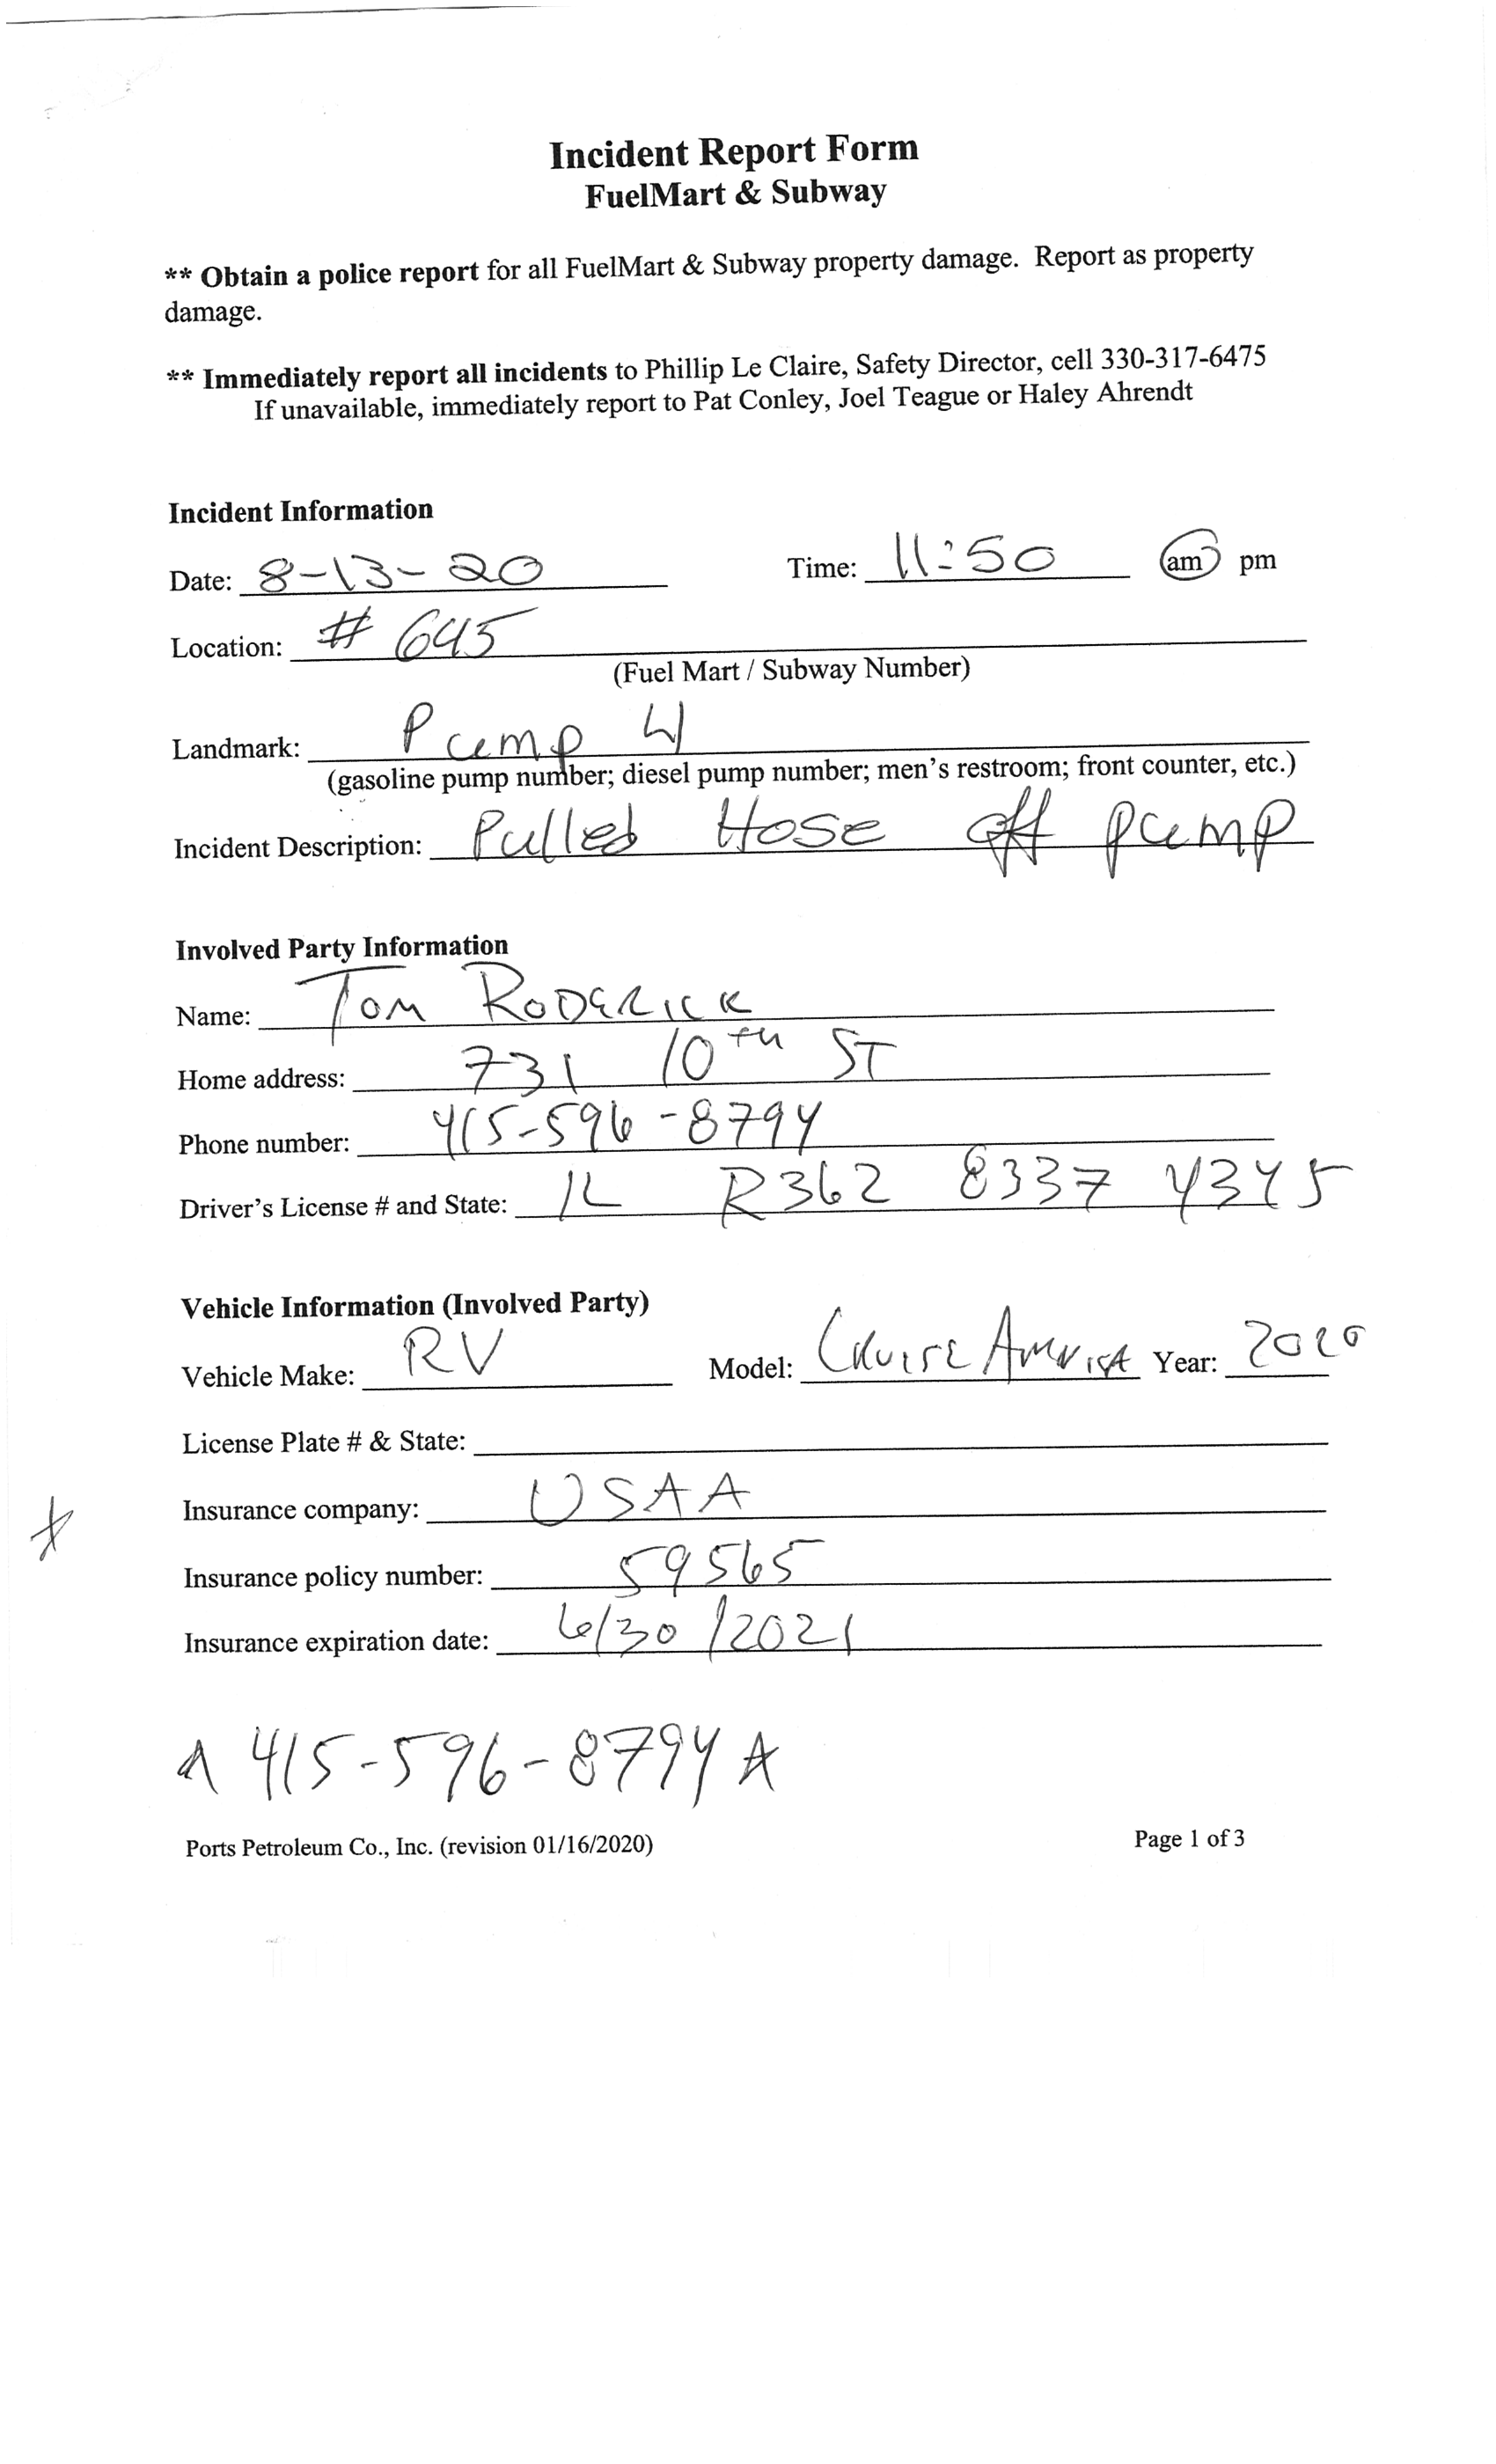 Incident Report Form
FuelMart & Subway
** Obtain a police report for all FuelMart & Subway property damage. Report as property
damage.
** Immediately report all incidents to Phillip Le Claire, Safety Director, cell 330-317-6475
If unavailable, immediately report to Pat Conley, Joel Teague or Haley Ahrendt
Incident Information
Date: 8-13-20 Time: 11:50 am pm
Location: # 645
(Fuel Mart / Subway Number)
Landmark: Pump 4
(gasoline pump number; diesel pump number; men's restroom; front counter, etc.)
Incident Description: Pulled Hose off pump
Involved Party Information
Name: Tom RODERICK
Home address: 731 10TH ST
Phone number: 415-596-8794
Driver's License # and State: IL R362 8337 4345
Vehicle Information (Involved Party)
Vehicle Make: RV Model: Cruise America Year: 2020
License Plate # & State:
Insurance company: USAA
Insurance policy number: 59565
Insurance expiration date: 6/30/2021
415-596-8794
Ports Petroleum Co., Inc. (revision 01/16/2020) Page 1 of 3